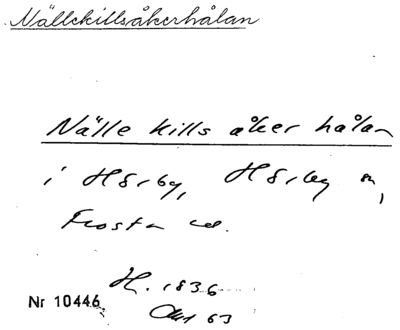 Nällekillsåkerhålan
Nälle kills åker hålan
i Hörby, Hörby sn,
Frosta hd.
H. 1836
Nr 10446
63